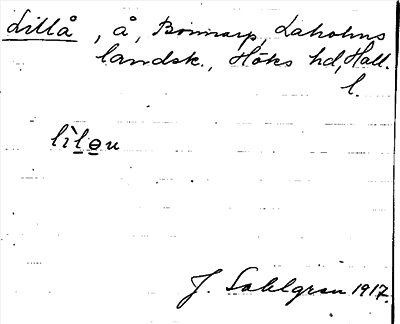 Lillå, å, Bonnarp, Laholms
landsk., Höks hd, Hall.
l.
lìlɵu
J. Sahlgren 1917.